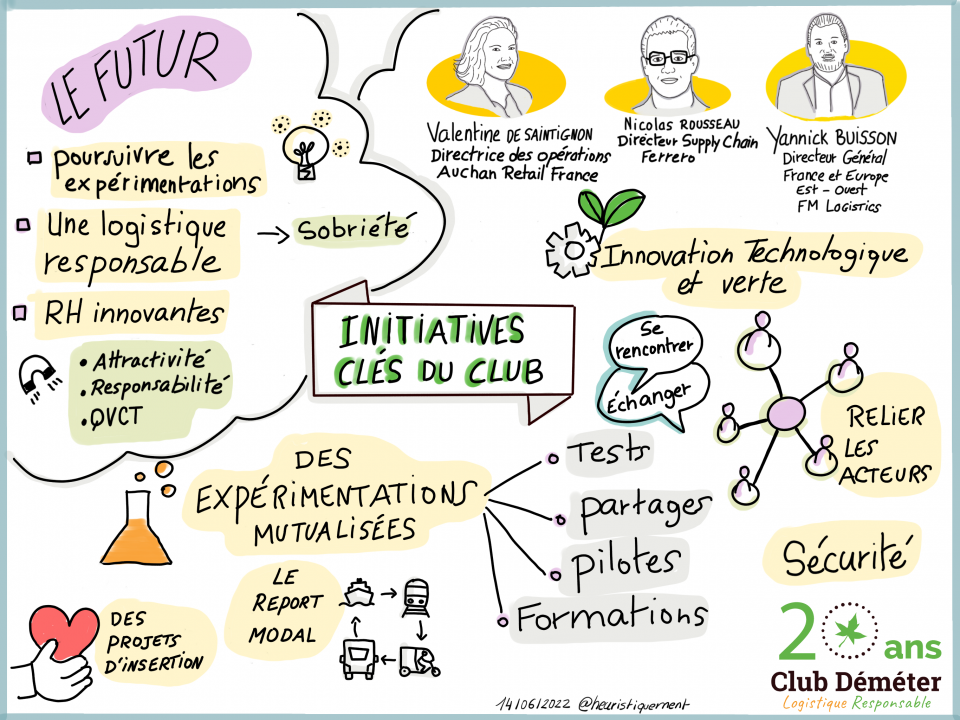 LE FUTUR
poursuivre les
expérimentations
Une logistique
responsable
→ Sobriété
RH innovantes
• Attractivité
• Responsabilité
• QVCT
Valentine DE SAINTIGNON
Directrice des opérations
Auchan Retail France
Nicolas ROUSSEAU
Directeur Supply Chain
Ferrero
Yannick BUISSON
Directeur Général
France et Europe
Est - Ouest
FM Logistics
Innovation Technologique
et verte
INITIATIVES
CLÉS DU CLUB
Se
rencontrer
Échanger
RELIER
LES
ACTEURS
DES
EXPÉRIMENTATIONS
MUTUALISÉES
Tests
partages
pilotes
Formations
Sécurité
LE
REPORT
MODAL
DES
PROJETS
D'INSERTION
20 ans
Club Déméter
Logistique Responsable
14/06/2022 @heuristiquement